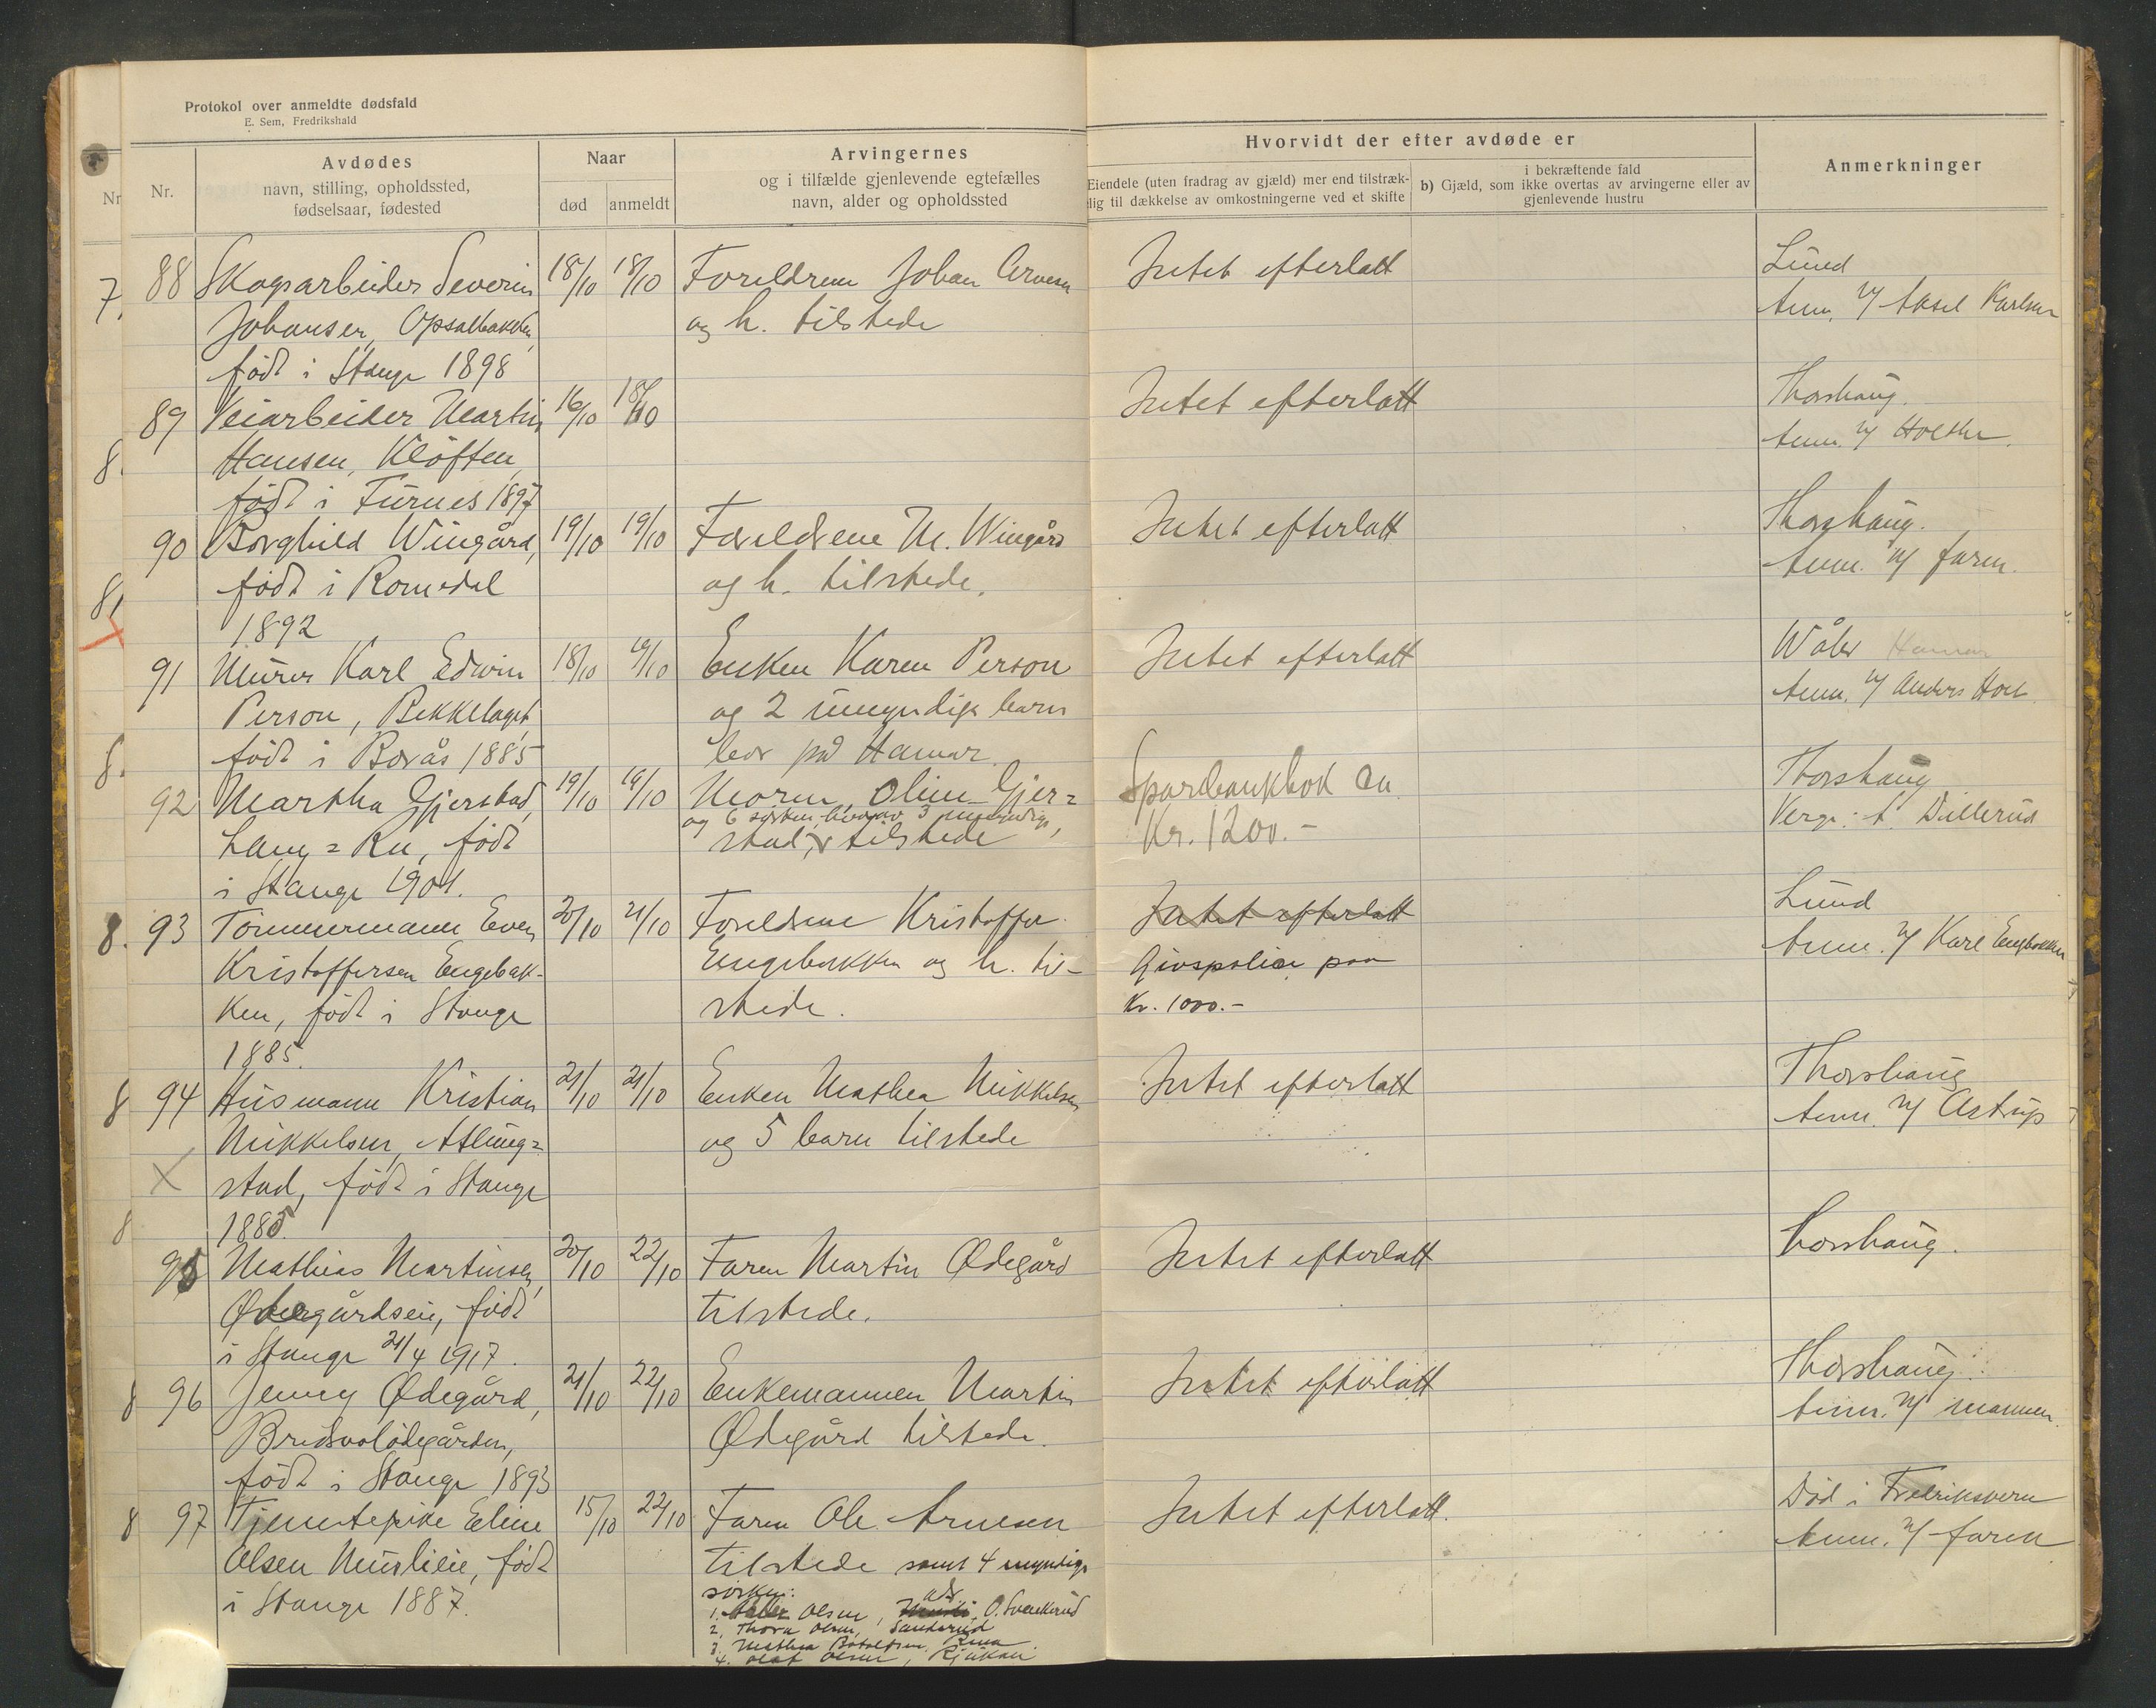 Protokol over anmeldte dødsfald
E. Sem, Fredrikshald
Nr.
Avdødes
navn, stilling, opholdssted,
fødselsaar, fødested
Naar
død
anmeldt
Arvingernes
og i tilfælde gjenlevende egtefælles
navn, alder og opholdssted
Hvorvidt der efter avdøde er
Eiendele (uten fradrag av gjæld) mer end tilstræk-
lig til dækkelse av omkostningerne ved et skifte
i bekræftende fald
b) Gjæld, som ikke overtas av arvingerne eller av
gjenlevende hustru
Anmerkninger
Nr
7.
8.
8,
8.
88
Skogsarbeider Severin
Johansen, Opsalbakken,
født i Stange 1898
18/10
18/10
Foreldrene Johan Arnesen
og h. tilstede
Intet efterlatt
Lund
Anm. v/ Aksel Karlsen
89
Veiarbeider Martin
Hansen, Kløften,
født i Furnes 1897
16/10
18/10
Intet efterlatt
Thorshaug.
Anm. v/ Holther.
90
Borghild Wingård,
født i Romedal
1892
19/10
19/10
Foreldrene M. Wingård
og h. tilstede.
Intet efterlatt
Thorshaug.
Anm. v/ faren.
91
Murer Karl Edwin
Person, Bekkelaget,
født i Borås 1885
18/10
19/10
Enken Karen Person
og 2 umyndige barn
bor på Hamar.
Intet efterlatt
Wåler Hamar
Anm. v/ Anders Hoel
92
Martha Gjerstad,
Lang-Ru, født
i Stange 1901.
19/10
19/10
Moren, Oline Gjer=
og 6 søsken, hvorav 3 umyndige,
stad, tilstede
Sparebankbok ca
Kr. 1200.-
Thorshaug
Verge: A. Dillerud
8. 93
Tømmermann Even
Kristoffersen Engebak-
ken, født i Stange
1885.
20/10
21/10
Foreldrene Kristoffer
Engebakken og h. til-
stede.
Intet efterlatt
Livspolice paa
Kr. 1000.-
Lund
Anm. v/ Karl Engbakken
8 94
Husmann Kristian
Mikkelsen, Atlung=
stad, født i Stange
1885.
21/10
21/10
Enken Mathea Mikkelsen
og 5 barn tilstede
Intet efterlatt
Thorshaug
Anm. v/ Astrup
8
95
Mathias Martinsen,
Ødegårdseie, født
i Stange 21/4 1917.
20/10
22/10
Faren Martin Ødegård
tilstede.
Intet efterlatt
Thorshaug.
8 96
Jenny Ødegård,
Bredvolødegården,
født i Stange 1893
21/10
22/10
Enkemannen Martin
Ødegård tilstede.
Intet efterlatt
Thorshaug.
Anm. v/ mannen.
8 97
Tjenestepike Eline
Olsen Murlieie, født
i Stange 1887.
15/10
22/10
Faren Ole Arnesen
tilstede samt 4 myndige
søsken:
1. Olsen, adr. O. Svenkerud
2. Thora Olsen, Sanderud
3. Mathea Botolfsen, Rena.
4. Olaf Olsen, Rjukan
Intet efterlatt.
Død i Fredriksvern
Anm. v/ faren